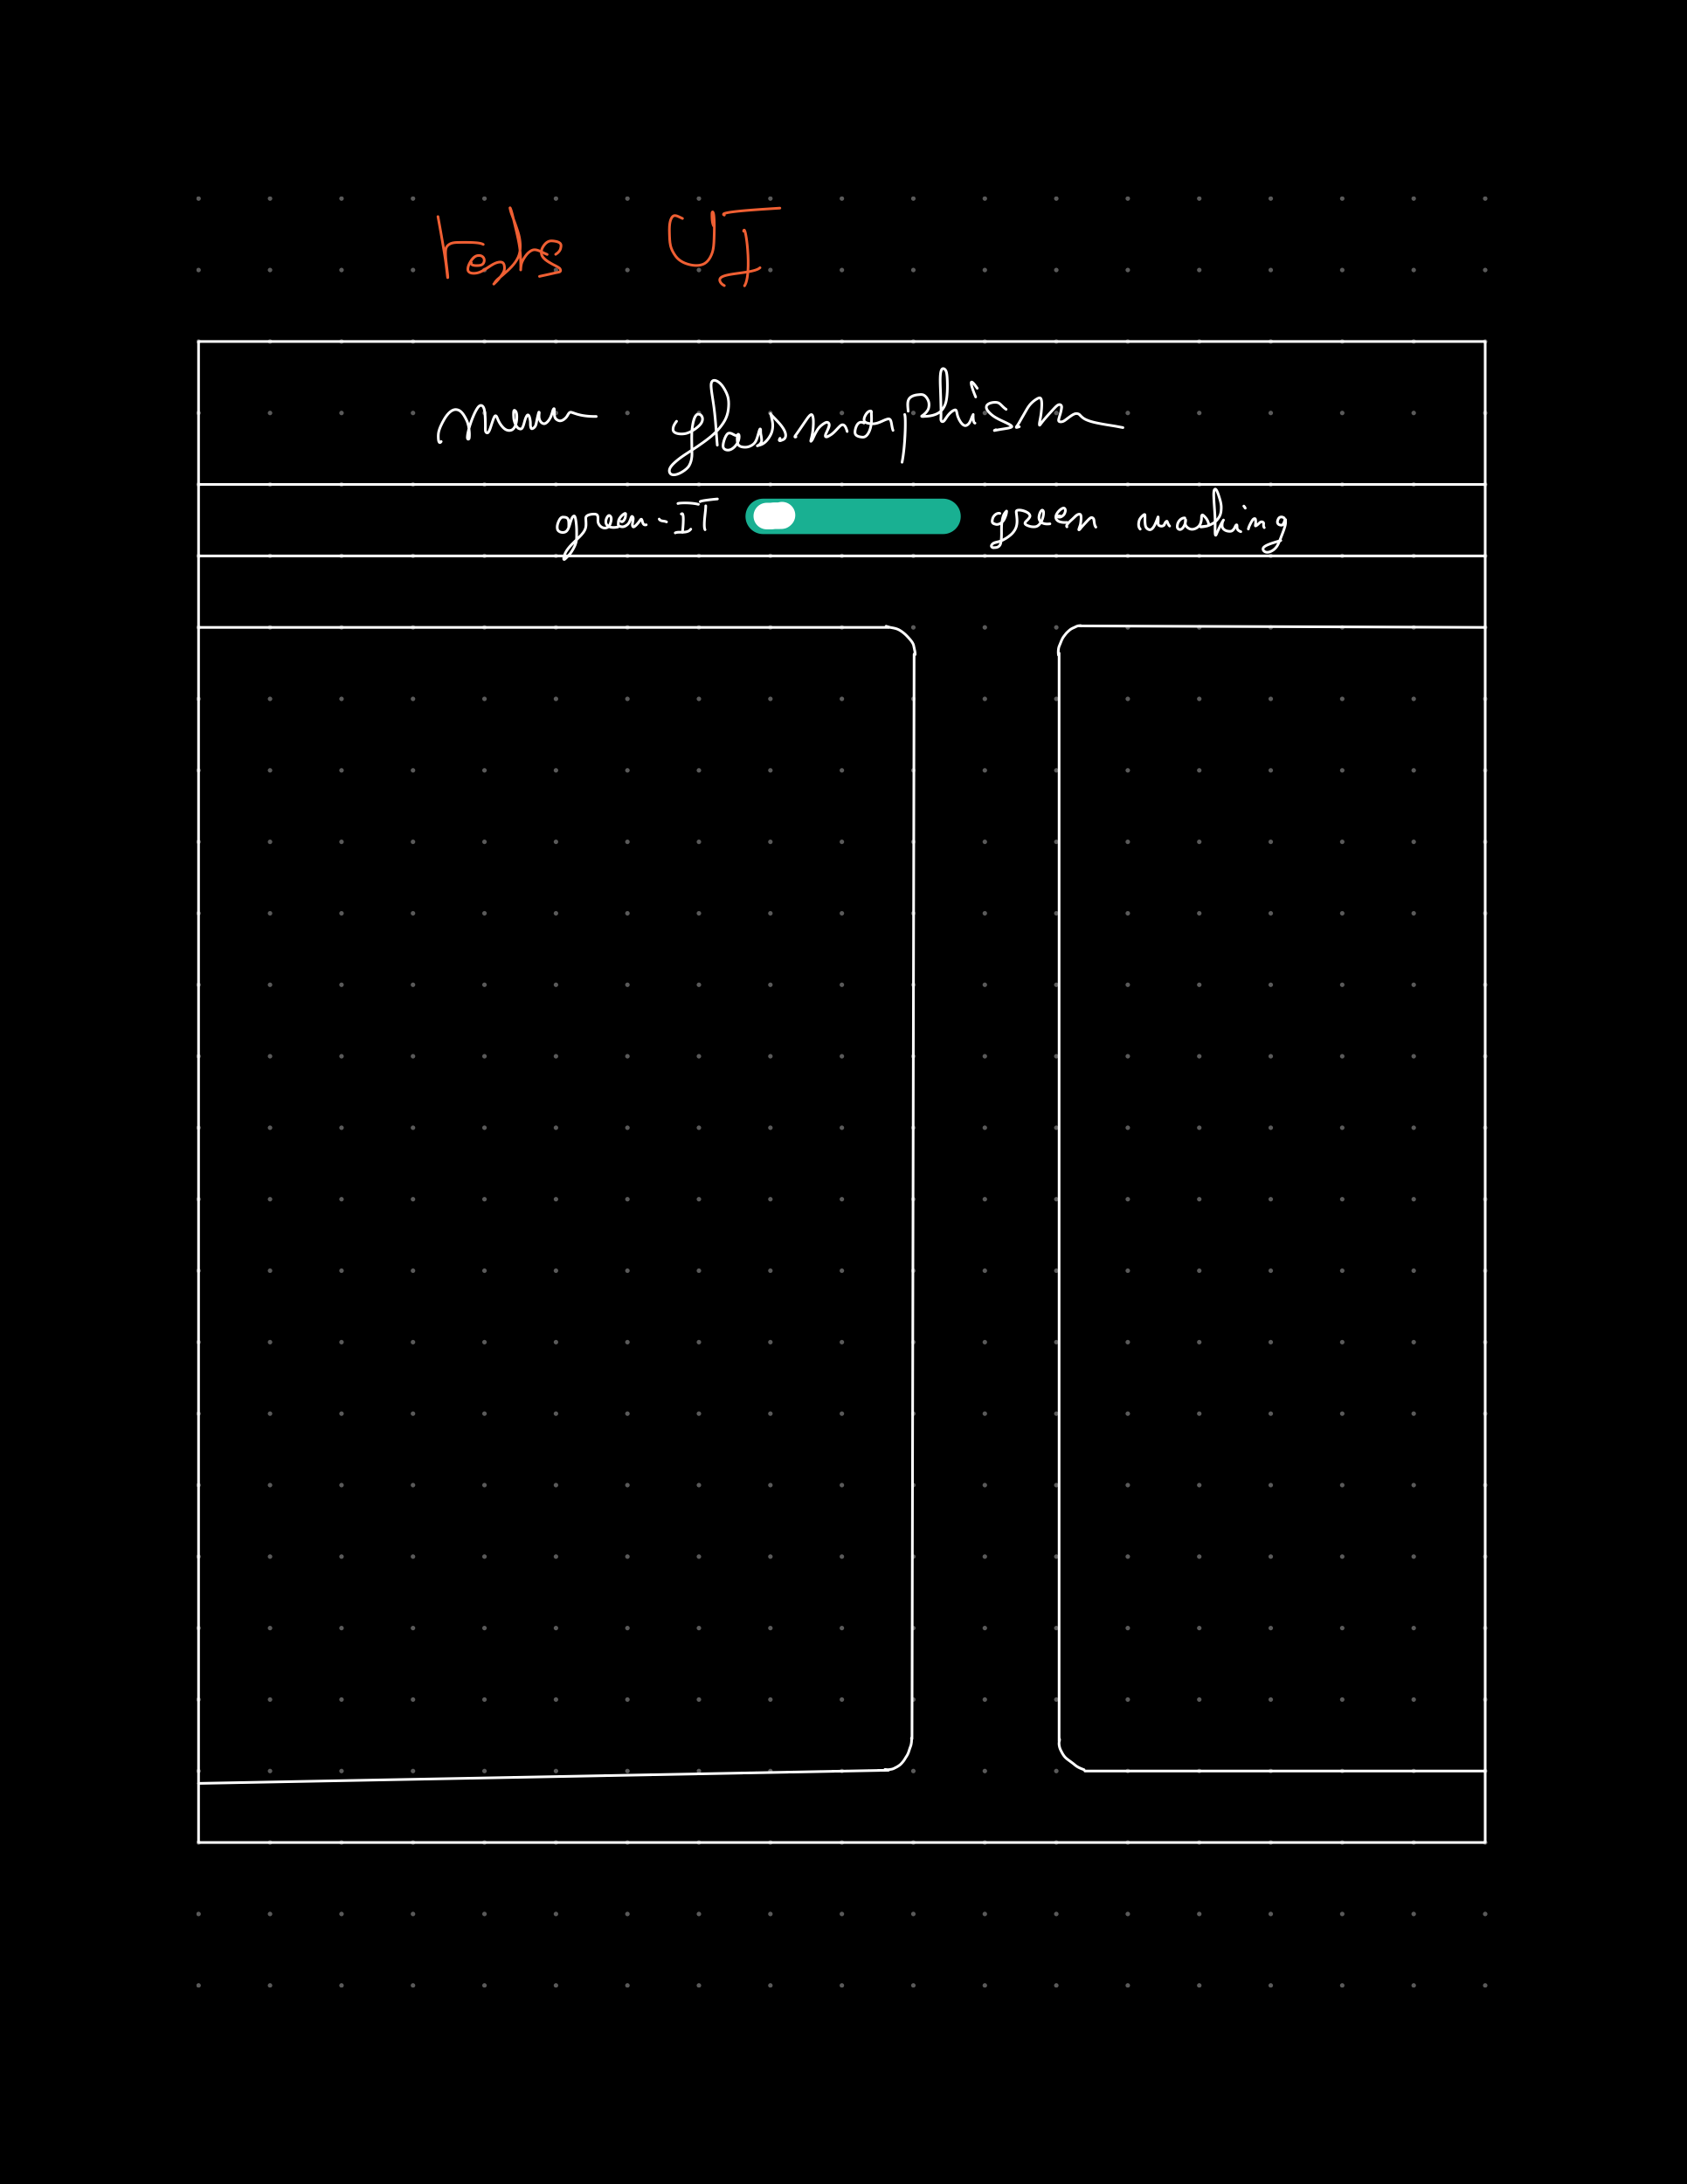 tests UI
menu glassmorphism
green-IT green washing